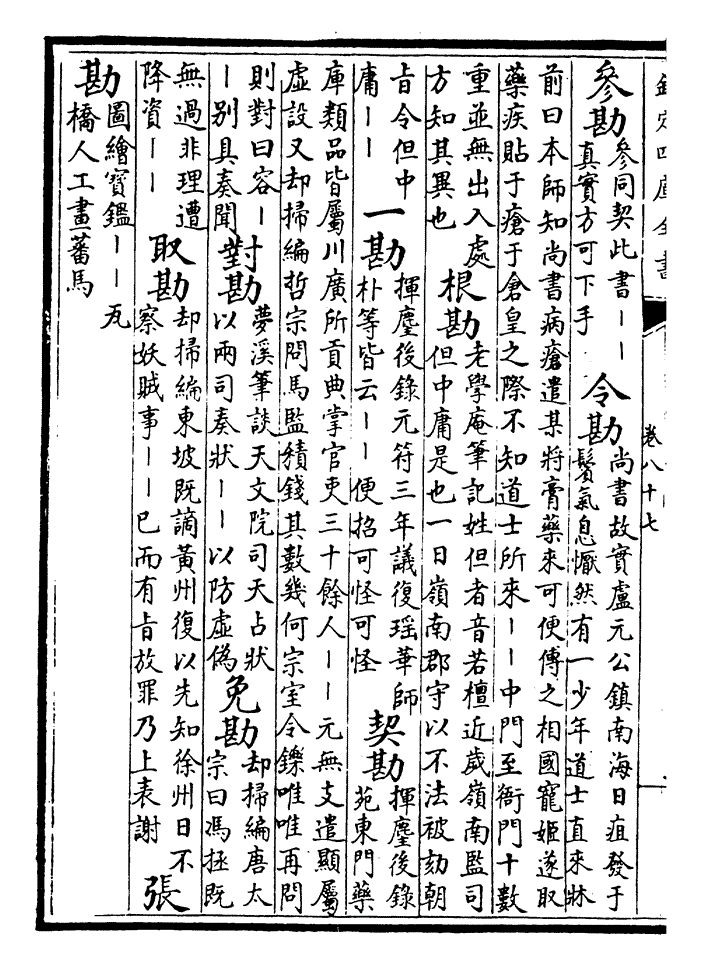 欽定四庫全書
卷八十七
參勘
參同契此書——
真實方可下手
令勘
尚書故實盧元公鎮南海日疽發于
鬢氣息懨然有一少年道士直來牀
前曰本師知尚書病瘡遣某將膏藥來可便傅之相國寵姬遂取
藥疾貼于瘡于倉皇之際不知道士所來——中門至衙門十數
重並無出入處
方知其異也
根勘
老學庵筆記姓但者音若檀近歲嶺南監司
但中庸是也一日嶺南郡守以不法被劾朝
旨令但中
庸——
一勘
揮麈後錄元符三年議復瑤華師
朴等皆云——便招可怪可怪
契勘
揮麈後錄
苑東門藥
庫類品皆屬川廣所貢典掌官吏三十餘人——元無支遣顯屬
虛設又却掃編哲宗問馬監積錢其數幾何宗室令鑠唯唯再問
則對曰容—
—別具奏聞
對勘
夢溪筆談天文院司天占狀
以兩司奏狀——以防虛偽
免勘
却掃編唐太
宗曰馮拯既
無過非理遭
降資——
取勘
却掃編東坡既謫黃州復以先知徐州日不
察妖賊事——已而有旨放罪乃上表謝
張
勘
圖繪寶鑑——瓦
橋人工畫蕃馬